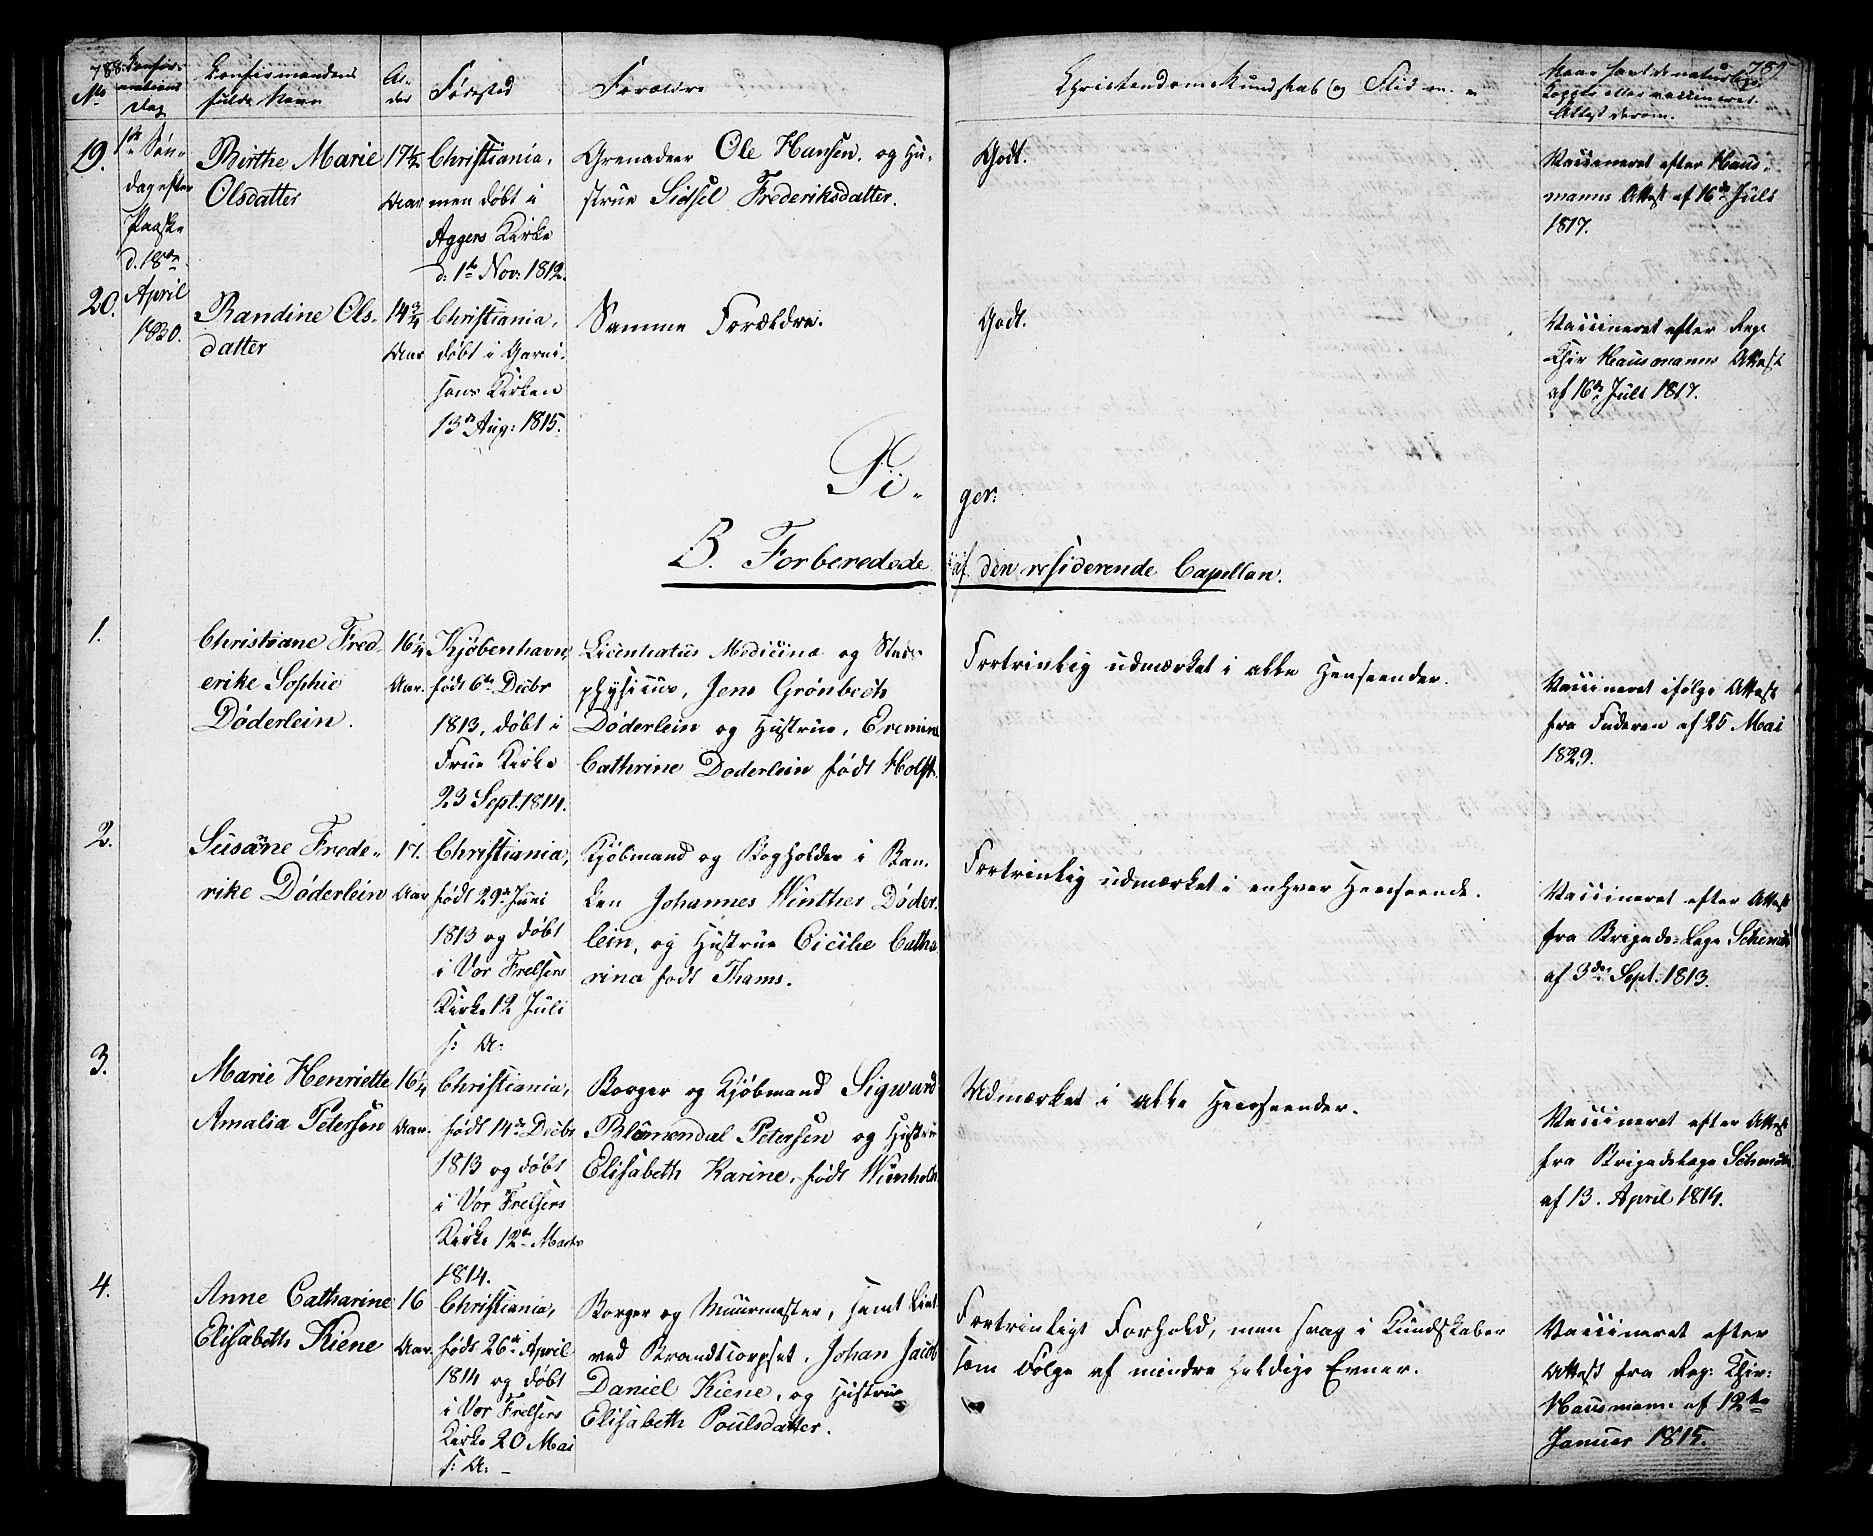 788.
No
Confir-
mations
Dag
Confirmandens
fulde Navn
Al-
der
Fødested
Forældre
Christendoms Kundskab og Flid m. =
789
Naar havt de naturlige
Kopper eller vaccineret.
Attest derom.
19.
1te Søn-
dag efter
Paaske
d. 18de
April
1830.
Birthe Marie
Olsdatter
17 1/2
Aar
Christiania,
men døbt i
Aggers Kirke
d: 1te Nov: 1812.
Grenadeer Ole Hansen, og Hu-
strue Sidsel Frederiksdatter.
Godt.
Vaccineret efter Haus-
manns Attest af 16de Juli
1817.
20.
Randine Ols-
datter
14 3/4
Aar
Christiania,
døbt i Garni-
sons Kirken
13de Aug: 1815.
Samme Forældre.
Godt.
Vaccineret efter Reg:
Chir Hausmanns Attest
af 16de Juli 1817.
Pi-
ger:
B. Forberedede
af den residerende Capellan.
1.
Christiane Fred-
erike Sophie
Døderlein.
16 1/4
Aar.
Kjøbenhavn,
født 6te Decbr
1813, døbt i
Frue Kirke
23 Sept. 1814.
Licentiatus Medicinæ og Stads-
physicus, Jens Grønbech
Døderlein og Hustrue,
Cathrine Døderlein født Holst.
Fortrinlig udmærket i alle Henseender.
Vaccineret ifølge Attest
fra Faderen af 25 Mai
1829.
2.
Susanne Frede-
rike Døderlein
17.
Aar
Christiania,
født 29de Juni
1813 og døbt
i Vor Frelsers
Kirke 12 Juli
s: A:
Kjøbmand og Bogholder i Ban-
ken Johannes Winther Døder-
lein, og Hustrue Cicilie Catha
rina født Thams.
Fortrinlig udmærket i enhver Henseende.
Vaccineret efter Attest
fra Brigade-Læge
af 3die Sept. 1813.
3.
Marie Henriette
Amalia Petersen
16 1/4
Aar.
Christiania,
født 14de Decbr
1813 og døbt
i Vor Frelsers
Kirke 12te Marts
1814.
Borger og Kjøbmand Sigward
Blumendal Petersen og Hustrue
Elisabeth Karine, født
Udmærket i alle Henseender.
Vaccineret efter Attest
fra Brigadelæge
af 13. April 1814.
4.
Anne Catharine
Elisabeth Kiene
16
Aar.
Christiania,
født 26de April
1814 og døbt
i Vor Frelsers
Kirke 20 Mai
s: A: -
Borger og Muurmester, samt Lieut
ved Brandtcorpset, Johan Jacob
Daniel Kiene, og Hustrue
Elisabeth Poulsdatter.
Fortrinligt Forhold, men svag i Kundskaber
som Følge af mindre heldige Evner.
Vaccineret efter
Attest fra Reg: Chir:
Hausmann af 12te
Januar 1815.